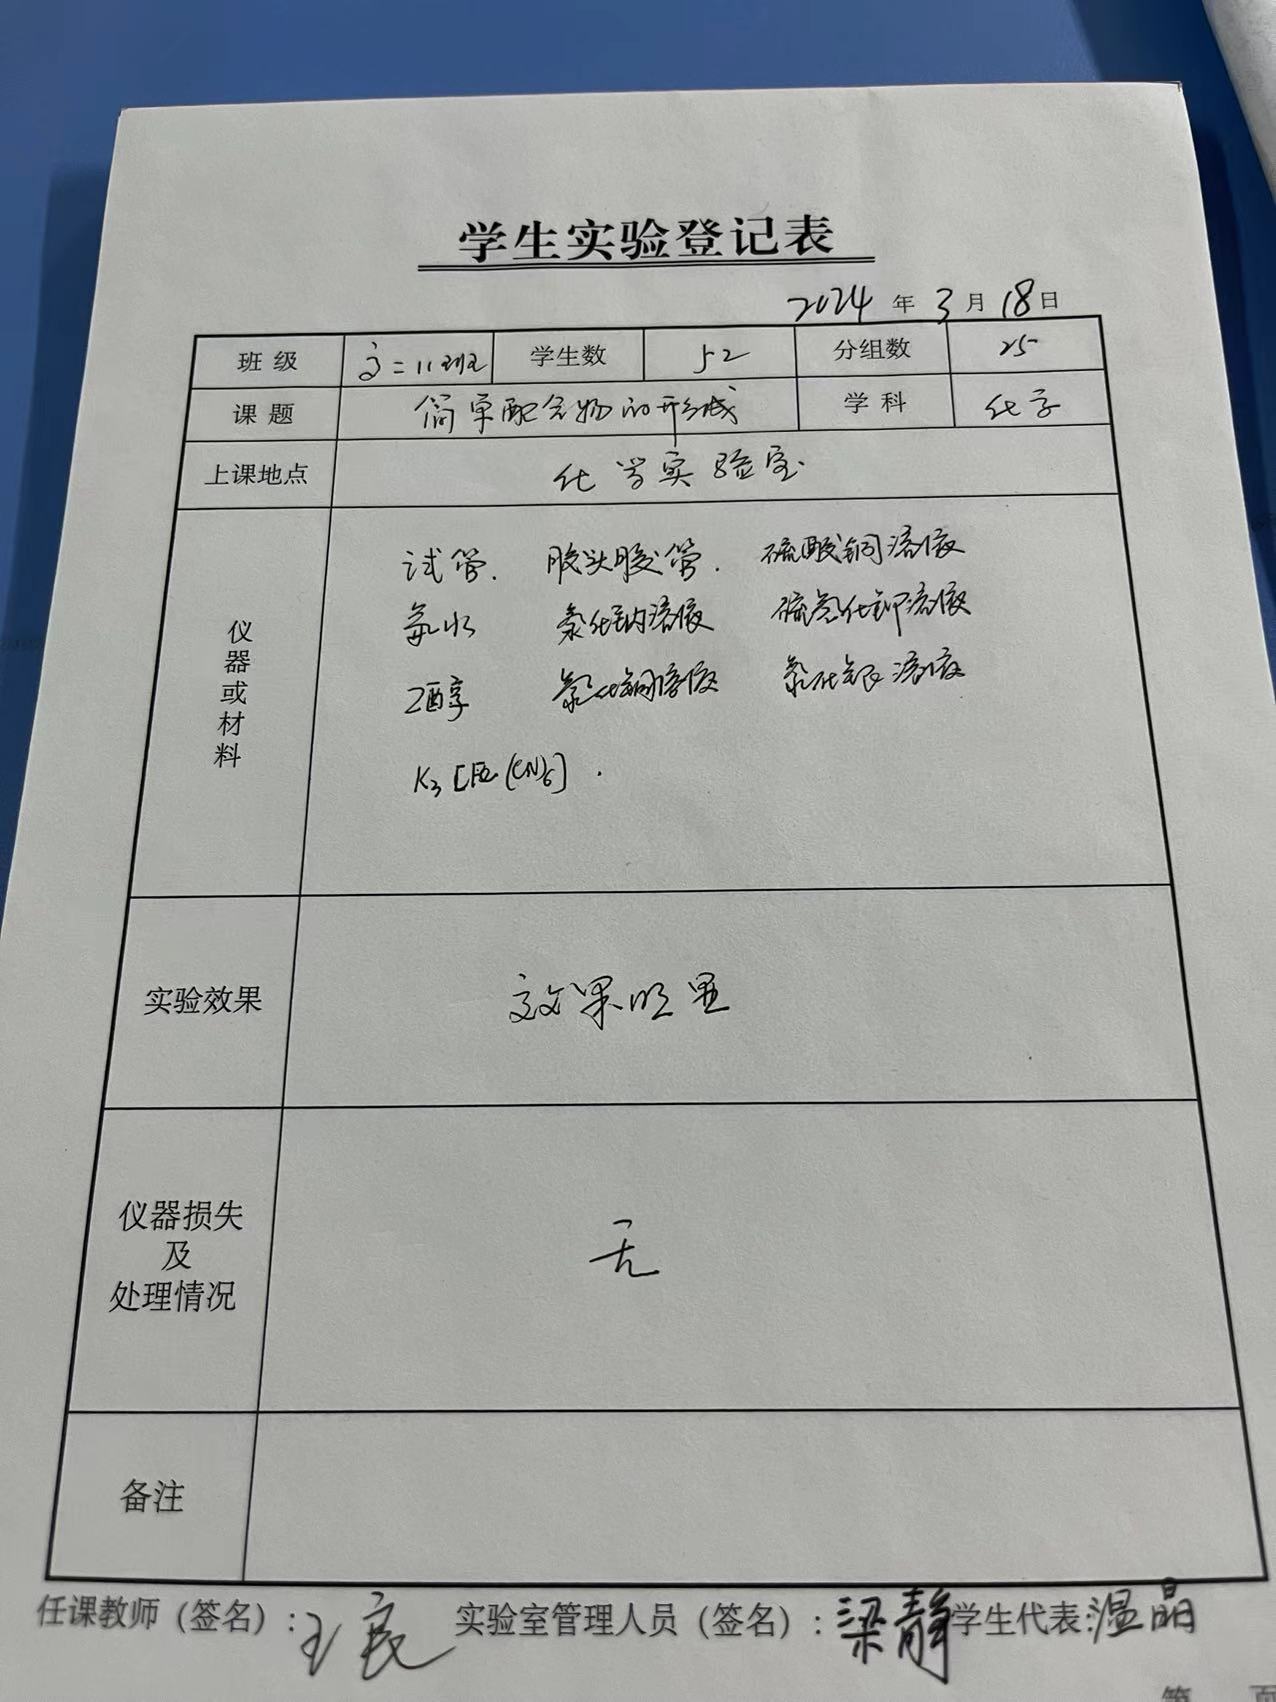 学生实验登记表
2024 年 3 月 18 日
班级 高二11班 学生数 52 分组数 25
课题 简单配合物的形成 学科 化学
上课地点 化学实验室
仪器或材料
试管. 胶头胶管. 硫酸铜溶液
氨水 氯化钠溶液 硫氰化钾溶液
乙醇 氯化铜溶液 氯化银溶液
K3[Fe(CN)6].
实验效果 效果明显
仪器损失及处理情况 无
备注
任课教师（签名）: 王良 实验室管理人员（签名）: 梁静 学生代表: 温晶
第 页